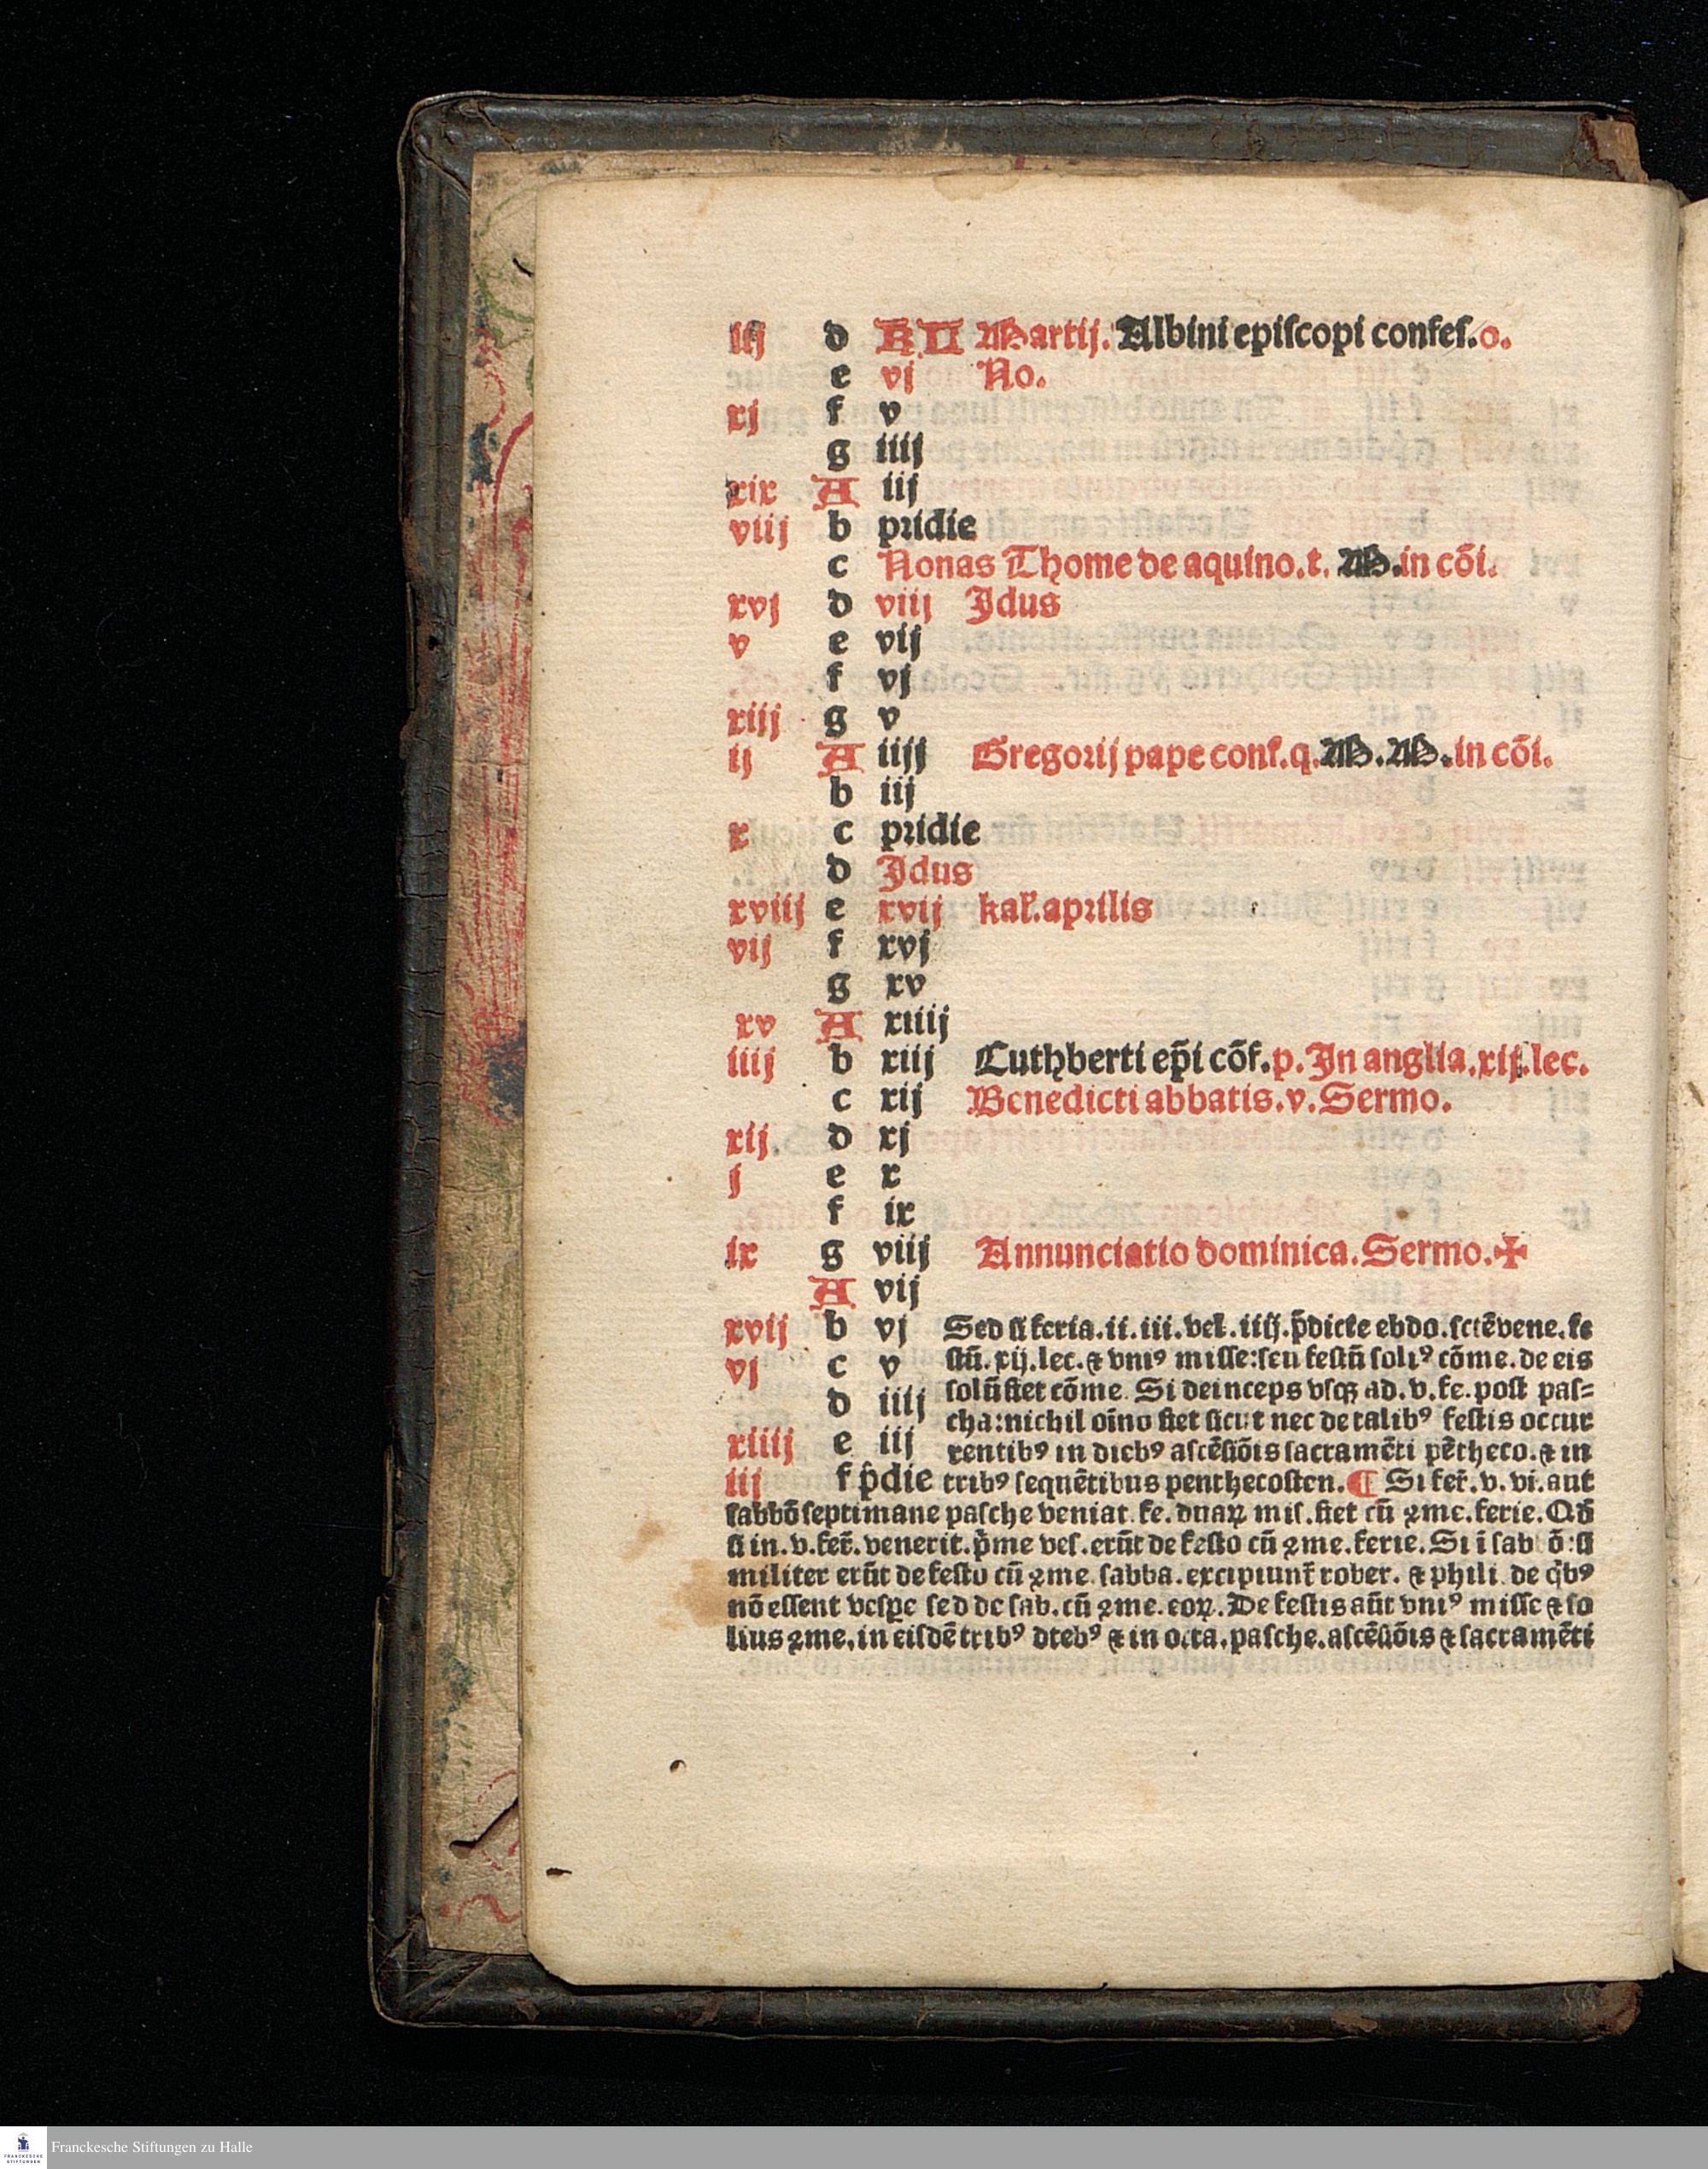 iij d KL Martij. Albini episcopi confes. o.
e vj No.
xj f v
g iiij
xix A iij
viij b pridie
c Nonas Thome de aquino. t. M. in cōi.
xvj d viij Idus
v e vij
f vj
xiij g v
ij A iiij Gregorij pape conf. q. M. M. in cōi.
b iij
x c pridie
d Idus
xviij e xvij kal. aprilis
vij f xvj
g xv
xv A xiiij
iiij b xiij Cuthberti ep̄i cōf. p. In anglia. xij. lec.
c xij Benedicti abbatis. v. Sermo.
xij. d xj
j e x
f ix
ix g viij Annunciatio dominica. Sermo. ✠
A vij
xvij b vj Sed si feria. ii. iii. vel. iiij. p̄dicte ebdo. sctē vene. fe
vj c v stū. xij. lec. & vniꝰ misse: seu festū soliꝰ cōme. de eis
d iiij solū fiet cōme. Si deinceps vsqꝫ ad. v. fe. post pas=
cha: nichil oīno fiet sicut nec de talibꝰ festis occur
xiiij e iij rentibꝰ in diebꝰ ascēsiōis sacramēti pētheco. & in
iij f p̄die tribꝰ sequētibus penthecosten. ¶ Si fer̄. v. vi. aut
sabbō septimane pasche veniat. fe. duaꝝ mis. fiet cū ꝯme. ferie. Qđ
si in. v. fer̄. venerit. p̄me ves. erūt de festo cū ꝯme. ferie. Si ī sab ō: si
militer erūt de festo cū ꝯme. sabba. excipiunt̄ rober. & phili. de q̄bꝰ
nō essent vespe sed de sab. cū ꝯme. eoꝝ. De festis aūt vniꝰ misse & so
lius ꝯme. in eisdē tribꝰ diebꝰ & in octa. pasche. ascēsiōis & sacramēti
Franckesche Stiftungen zu Halle